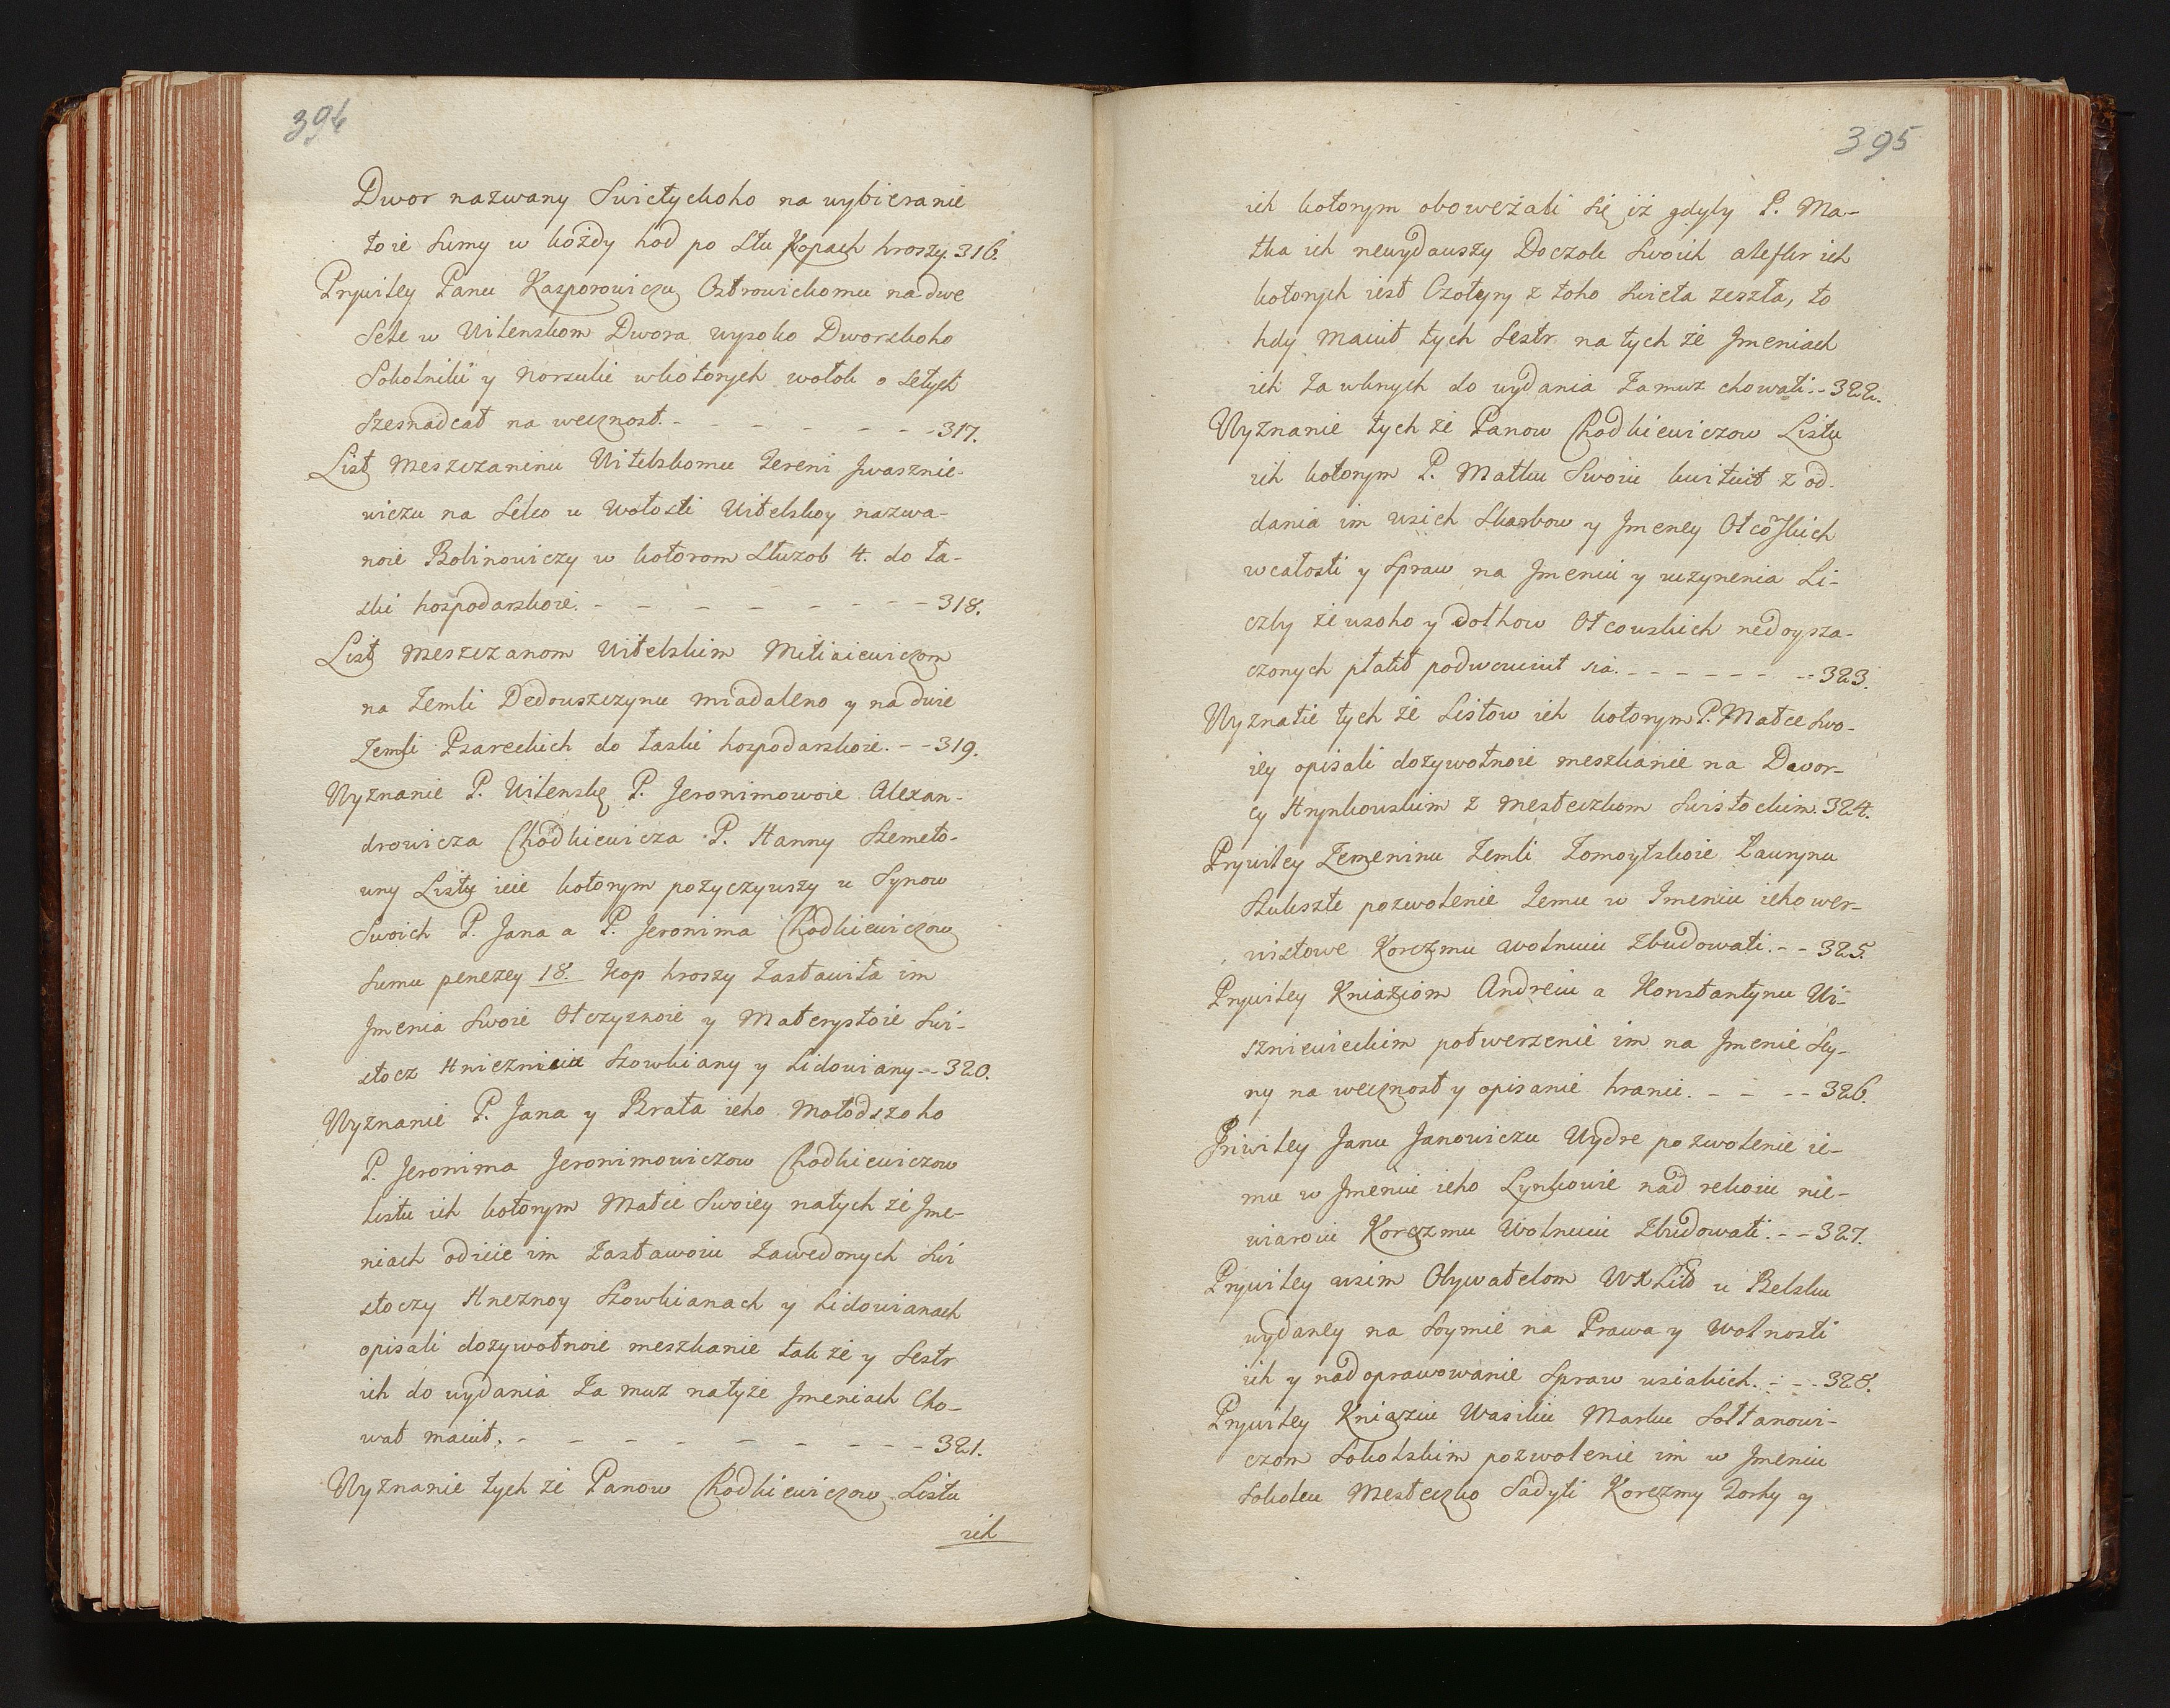 394
Dwor nazwany Swietyckoho na wybieranie
toie sumy w kożdy hod po stu Kopach hroszy. 316.
Prywiley Panu Kasporowiczu Ostrowickomu na dwe
Sele w Witenskom Dwora wysoko Dworskoho
Sokolniki y Norsulie w kotorych wolok oselych
szesnadcat na wecznost. - - - - - - - 317.
List Meszczaninu Witebskomu Tereni Jwasznie-
wiczu na Selco u Wolosti Witebskoy nazwa-
noie Bolinowiczy w kotorom Służob 4. do ła-
ski hospodarskoie. - - - - - - - - 318.
List Meszczanom Witebskim Mitiaiewiczom
na Zemli Dedouszczynu Miadaleno y na dwie
Zemli Psareckich do łaski hospodarskoie. - - 319.
Wyznanie P. Witenskę P. Jeronimowoie Alexan-
drowicza Chodkiewicza P. Hanny Szemeto-
wny Listu ieie kotorym pożyczywszy u Synow
Swoich P. Jana a P. Jeronima Chodkiewiczow
Sumu penezey 18. Kop hroszy Zastawiła im
Jmenia Swoie Otczysnoie y Materystoie Swi-
słocz Hnieznieiu Szowkiany y Lidowiany - - 320.
Wyznanie P. Jana y Brata ieho Mołodszoho
P. Jeronima Jeronimowiczow Chodkiewiczow
Listu ich kotorym Matce Swoiey na tych że Jme-
niach od ieie im Zastawoiu Zawedonych Swi
słoczy Hneznoy Szowkianach y Lidowianach
opisali dożywotnoie meszkanie tak że y Sestr
ich do wydania Za muż na tyże Jmeniach Cho-
wat maiut. - - - - - - - - - 321.
Wyznanie tych że Panow Chodkiewiczow Listu
ich
395
ich kotorym obowezali się iż gdyby P. Ma-
tka ich newydauszy Doczok Swoich a sestr ich
kotorych iest Czotyry z toho Swieta zeszła, to
hdy maiut tych Sestr na tych że Jmeniach
ich do wydania Zamuż chowati. - 322.
Wyznanie tych że Panow Chodkiewiczow Listu
ich kotorym P. Matku Swoiu kwituiut z od-
dania im usich Skarbow y Jmeney Otcowskich
w całosti y Spraw na Jmeniu y uczynenia Li-
czby że usoho y dolhow Otcouskich nedopła-
czonych płatit podweiuiut sia. - - - - - - - 323.
Wyznanie tych że Listow ich kotorym P. Matce Swo-
iey opisali dożywotnoie meszkanie na Dwor-
cy Hrynkouskim z mesteczkom Swisłockim. 324.
Prywiley Zemeninu Zemli Żomoytskoie Ławrynu
Szukszte pozwolenie Jemu w Jmeniu ieho Wer-
wistowe Korczmu wolnuiu Zbudowati. - - 325.
Prywiley Kniaziom Andreiu a Konstantynu Wi-
szniewieckim potwerzenie im na Jmenie Sky-
ny na wecznost y opisanie hranic. - - - - 326.
Priwiley Janu Janowiczu Wydre pozwolenie ie-
mu w Jmeniu ieho Lynkowie nad rekoiu nie-
wiaroiu Korczmu Wolnuiu Zbudowati. - - 327.
Prywiley usim Obywatelom WXLitt u Belsku
wydaney na Soymie na Prawa y wolnosti
ich y nad oprawowanie Spraw usiakich. - - - 328.
Prywiley Kniaziu Wasiliu Marku Sołtanowi-
czom Sokolskim pozwolenie im w Jmeniu
Sokolcu Mesteczko Sadyti Korczmy Torhy y